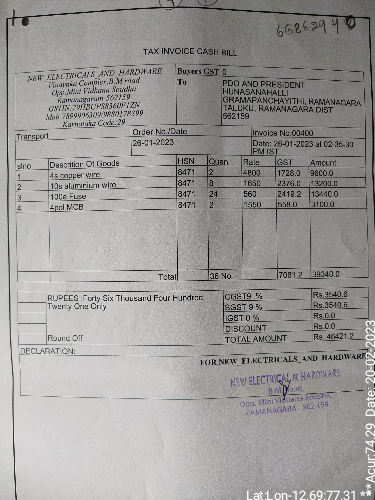 6686294 0
TAX INVOICE CASH BILL
NEW ELECTRICALS AND HARDWARE
Vinayaka Complex.B.M road
Opp.Mini Vidhana Soudha
Ramanagaram-562159
GSTIN:29HBUPS8360F1ZN
Mob 7899996309/9880178399
Karnataka Code:29
Buyers GST 0
To
PDO AND PRESIDENT
HUNASANAHALLI
GRAMAPANCHAYITHI, RAMANAGARA
TALUKU, RAMANAGARA DIST
562159
Transport
Order No./Date
26-01-2023
Invoice No:00400
Date: 26-01-2023 at 02:35:30
PM IST
slno Descrition Of Goods HSN Quan Rate GST Amount
1 4s copper wire 8471 2 4800 1728.0 9600.0
2 10s aluminium wire 8471 8 1650 2376.0 13200.0
3 100a Fuse 8471 24 560 2419.2 13440.0
4 4pol MCB 8471 2 1550 558.0 3100.0
Total 36 No. 7081.2 39340.0
RUPEES :Forty Six Thousand Four Hundred
Twenty One Only
Round Off
CGST9 % Rs.3540.6
SGST 9 % Rs.3540.6
IGST 0 % Rs.0.0
DISCOUNT Rs.0.0
TOTAL AMOUNT Rs. 46421.2
DECLARATION:
FOR NEW ELECTRICALS AND HARDWARE
NEW ELECTRICAL & HARDWARE
B.M. Road,
Opp. Mini Vidhana Soudha,
RAMANAGARA - 562 159
Lat:Lon-12.69:77.31
***Acur:74.29 Date: 20-02-2023